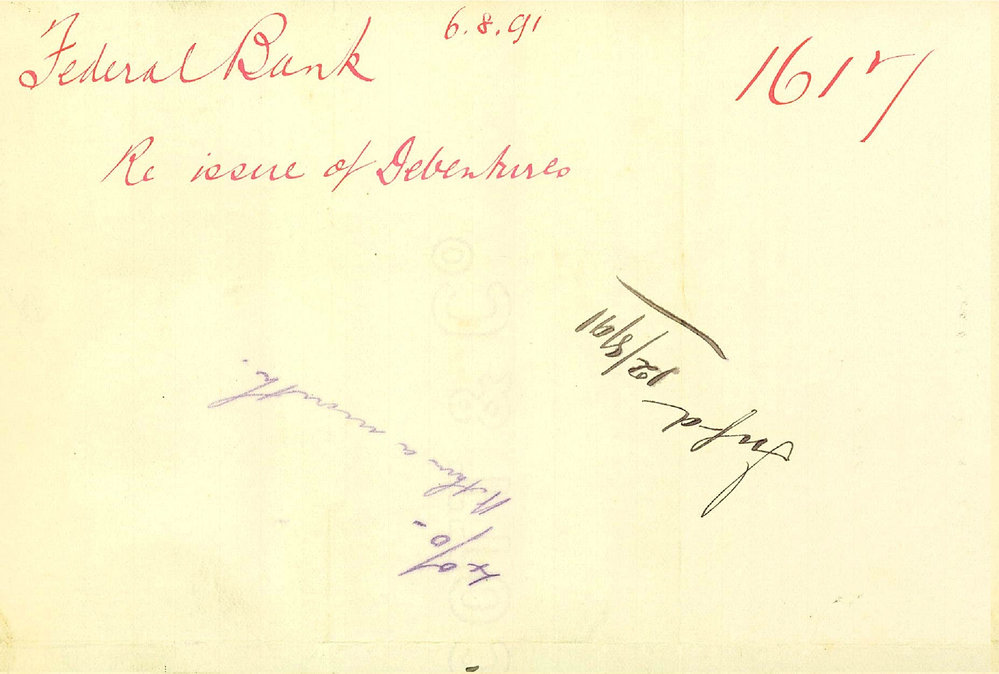 Federal Bank
6.8.91
1617
Re issue of Debentures
Infd
12/8/91
within a month.